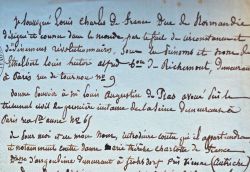 je soussigné Louis Charles de France Duc de Normandie
désigné et connu dans le monde par la suite des circonstances et
événemens révolutionnaires, sous les prénoms et noms de
Ethelbert Louis hector alfred baron de Richemont, demeurant
à Paris rue de tournon N° 9
donne pouvoir à M. Louis Auguste de Bras avoué près le
tribunal civil de première instance de la Seine demeurant à
Paris rue Ste anne N° 65
de pour moi et en mon nom, introduire contre qui il appartiendra
et notamment contre dame marie thérèse charlotte de france
d'angoulême demeurant à frohsdorf près Vienne (Autriche